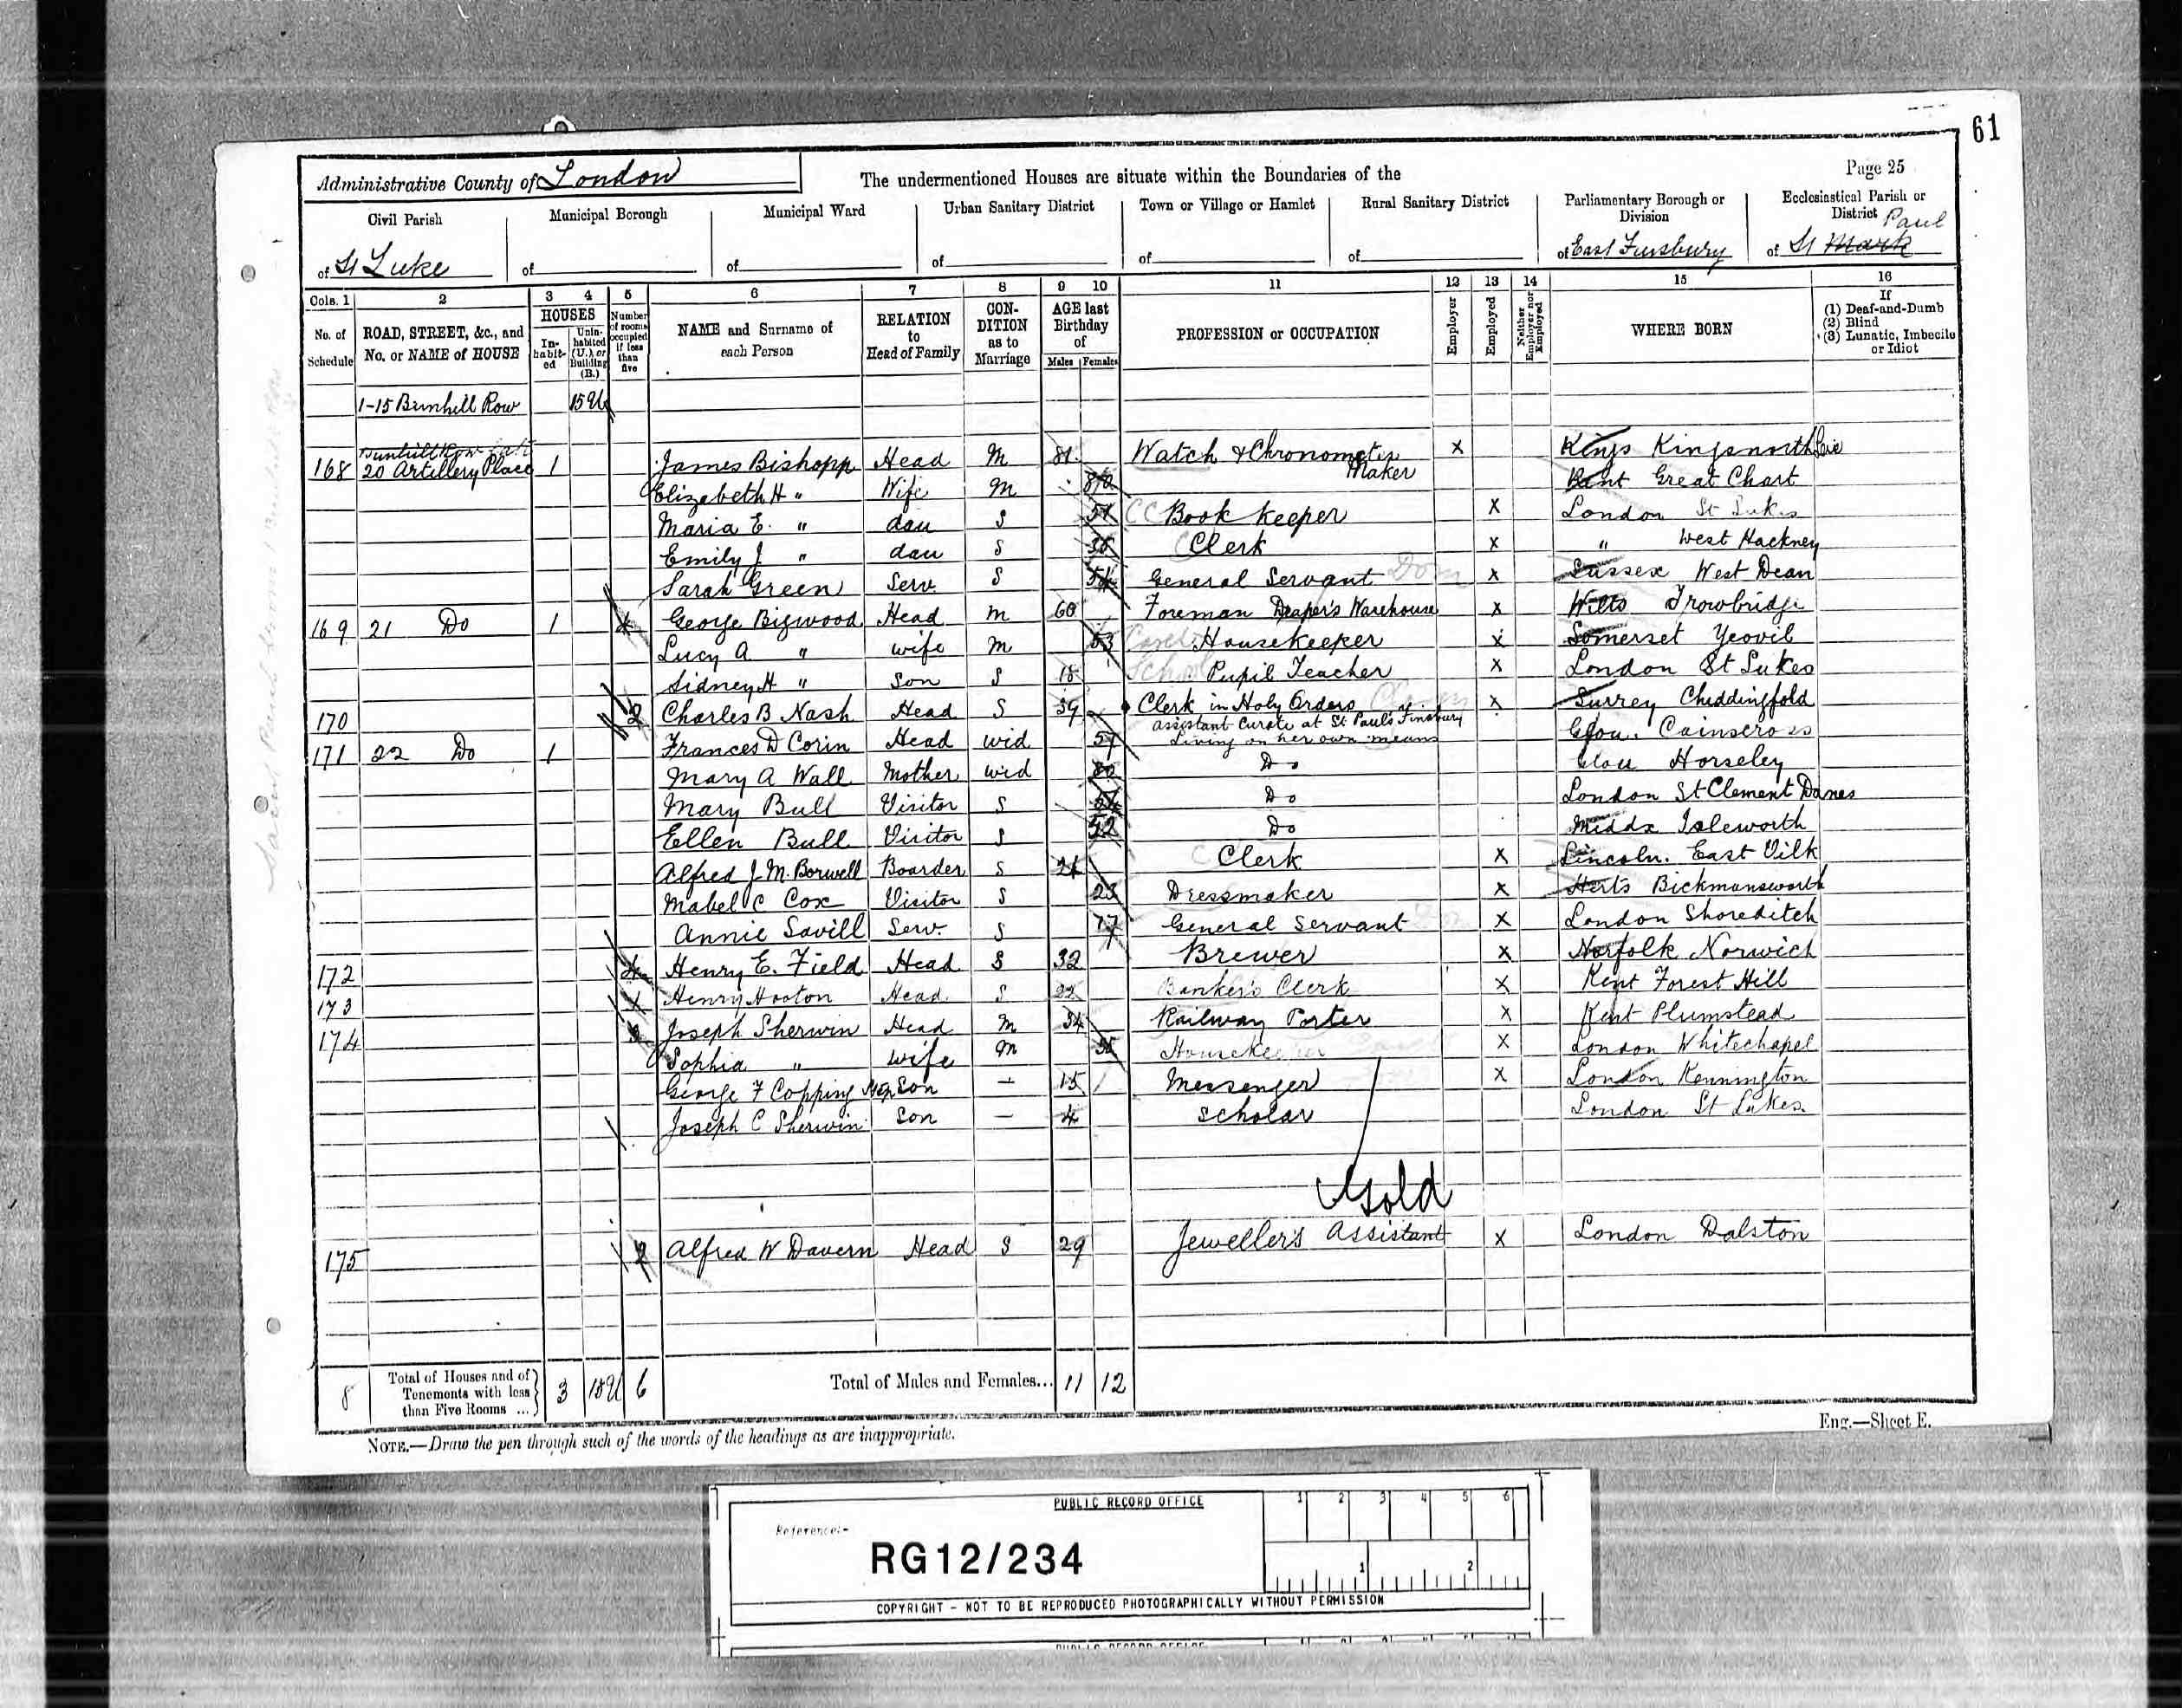 61
Administrative County of London
The undermentioned Houses are situate within the Boundaries of the
Page 25
Civil Parish
Municipal Borough
Municipal Ward
Urban Sanitary District
Town or Village or Hamlet
Rural Sanitary District
Parliamentary Borough or Division
Ecclesiastical Parish or District
of St Luke
of
of
of
of
of
of East Finsbury
of St Mark Paul
Cols. 1 2 3 4 5 6 7 8 9 10 11 12 13 14 15 16
No. of Schedule
ROAD, STREET, &c., and No. or NAME of HOUSE
HOUSES
In-habit-ed
Unin-habited (U.), or Building (B.)
Number of rooms occupied if less than five
NAME and Surname of each Person
RELATION to Head of Family
CON-DITION as to Marriage
AGE last Birthday of
Males Females
PROFESSION or OCCUPATION
Employer
Employed
Neither Employer nor Employed
WHERE BORN
If
(1) Deaf-and-Dumb
(2) Blind
(3) Lunatic, Imbecile or Idiot
1-15 Bunhill Row 15 U
Bunhill Row
168 20 Artillery Place 1 James Bishopp Head M 81 Watch & Chronometer Maker X Kingsnorth
Elizabeth H " Wife M Kent Great Chart
Maria E. " dau S 51 Book keeper X London St Lukes
Emily J " dau S 38 Clerk X " West Hackney
Sarah Green Serv. S 54 General Servant Dom X Sussex West Dean
169 21 Do 1 4 George Bigwood Head M 60 Foreman Draper's Warehouse X Wilts Trowbridge
Lucy A " wife M 53 Housekeeper X Somerset Yeovil
Sidney H " Son S 18 Pupil Teacher X London St Lukes
170 2 Charles B Nash Head S 39 Clerk in Holy Orders X Surrey Chiddingfold
assistant Curate at St Paul's Finsbury
171 22 Do 1 Frances D Corin Head wid 57 Living on her own means Glou. Cainscross
Mary A Wall Mother wid 80 Do Glou Horseley
Mary Bull Visitor S Do London St Clement Danes
Ellen Bull Visitor S 52 Do Middx Isleworth
Alfred J M. Borwell Boarder S 21 Clerk X Lincoln. East
Mabel C Cox Visitor S 23 Dressmaker X Herts Rickmansworth
Annie Savill Serv. S 17 General Servant X London Shoreditch
172 4 Henry E. Field Head S 32 Brewer X Norfolk Norwich
173 Henry Hooton Head S 22 Banker's Clerk X Kent Forest Hill
174 3 Joseph Sherwin Head M 34 Railway Porter X Kent Plumstead
Sophia " wife M 35 Housekeeper X London Whitechapel
George F Copping Son — 15 Messenger X London Kennington
Joseph C Sherwin Son — 4 Scholar London St Lukes
Gold
175 2 Alfred W Davern Head S 29 Jeweller's Assistant X London Dalston
8 Total of Houses and of Tenements with less than Five Rooms ... 3 15 U 6 Total of Males and Females... 11 12
NOTE.—Draw the pen through such of the words of the headings as are inappropriate.
Eng.—Sheet E.
PUBLIC RECORD OFFICE
1 2 3 4 5 6
Reference:-
RG12/234
1 2
COPYRIGHT - NOT TO BE REPRODUCED PHOTOGRAPHICALLY WITHOUT PERMISSION
PUBLIC RECORD OFFICE